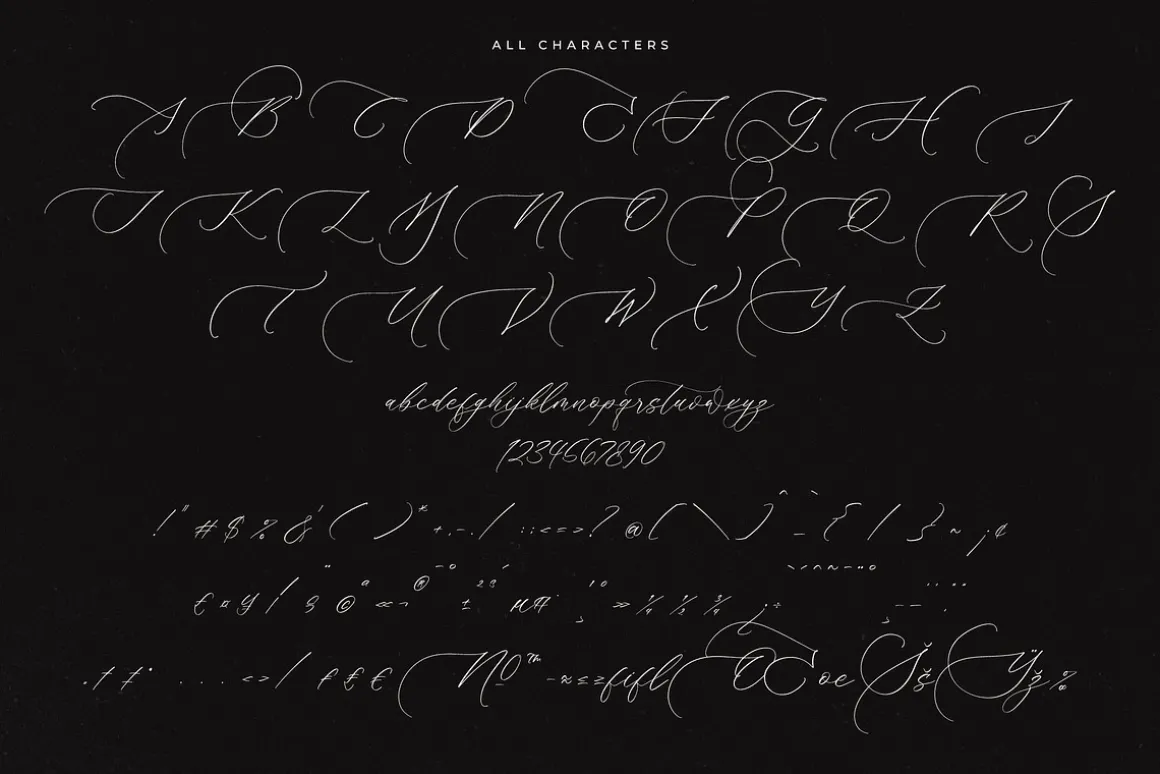 ALL CHARACTERS
A B C D E F G H I
J K L M N O P Q R S
T U V W X Y Z
abcdefghijklmnopqrstuvwxyz
1234567890
! " # $ % & ' ( ) * + , - . / : ; < = > ? @ [ \ ] ^ _ ` { | } ~ ¡ ¢
£ ¤ ¥ ¦ § ¨ © ª « ¬ ® ¯ ° ± ² ³ ´ µ ¶ ¸ ¹ º » ¼ ½ ¾ ¿ ÷
† ‡ • ‹ › ⁄ № ™ − ≈ ≤ ≥ fi fl Œ œ Š š Ÿ ž ‰